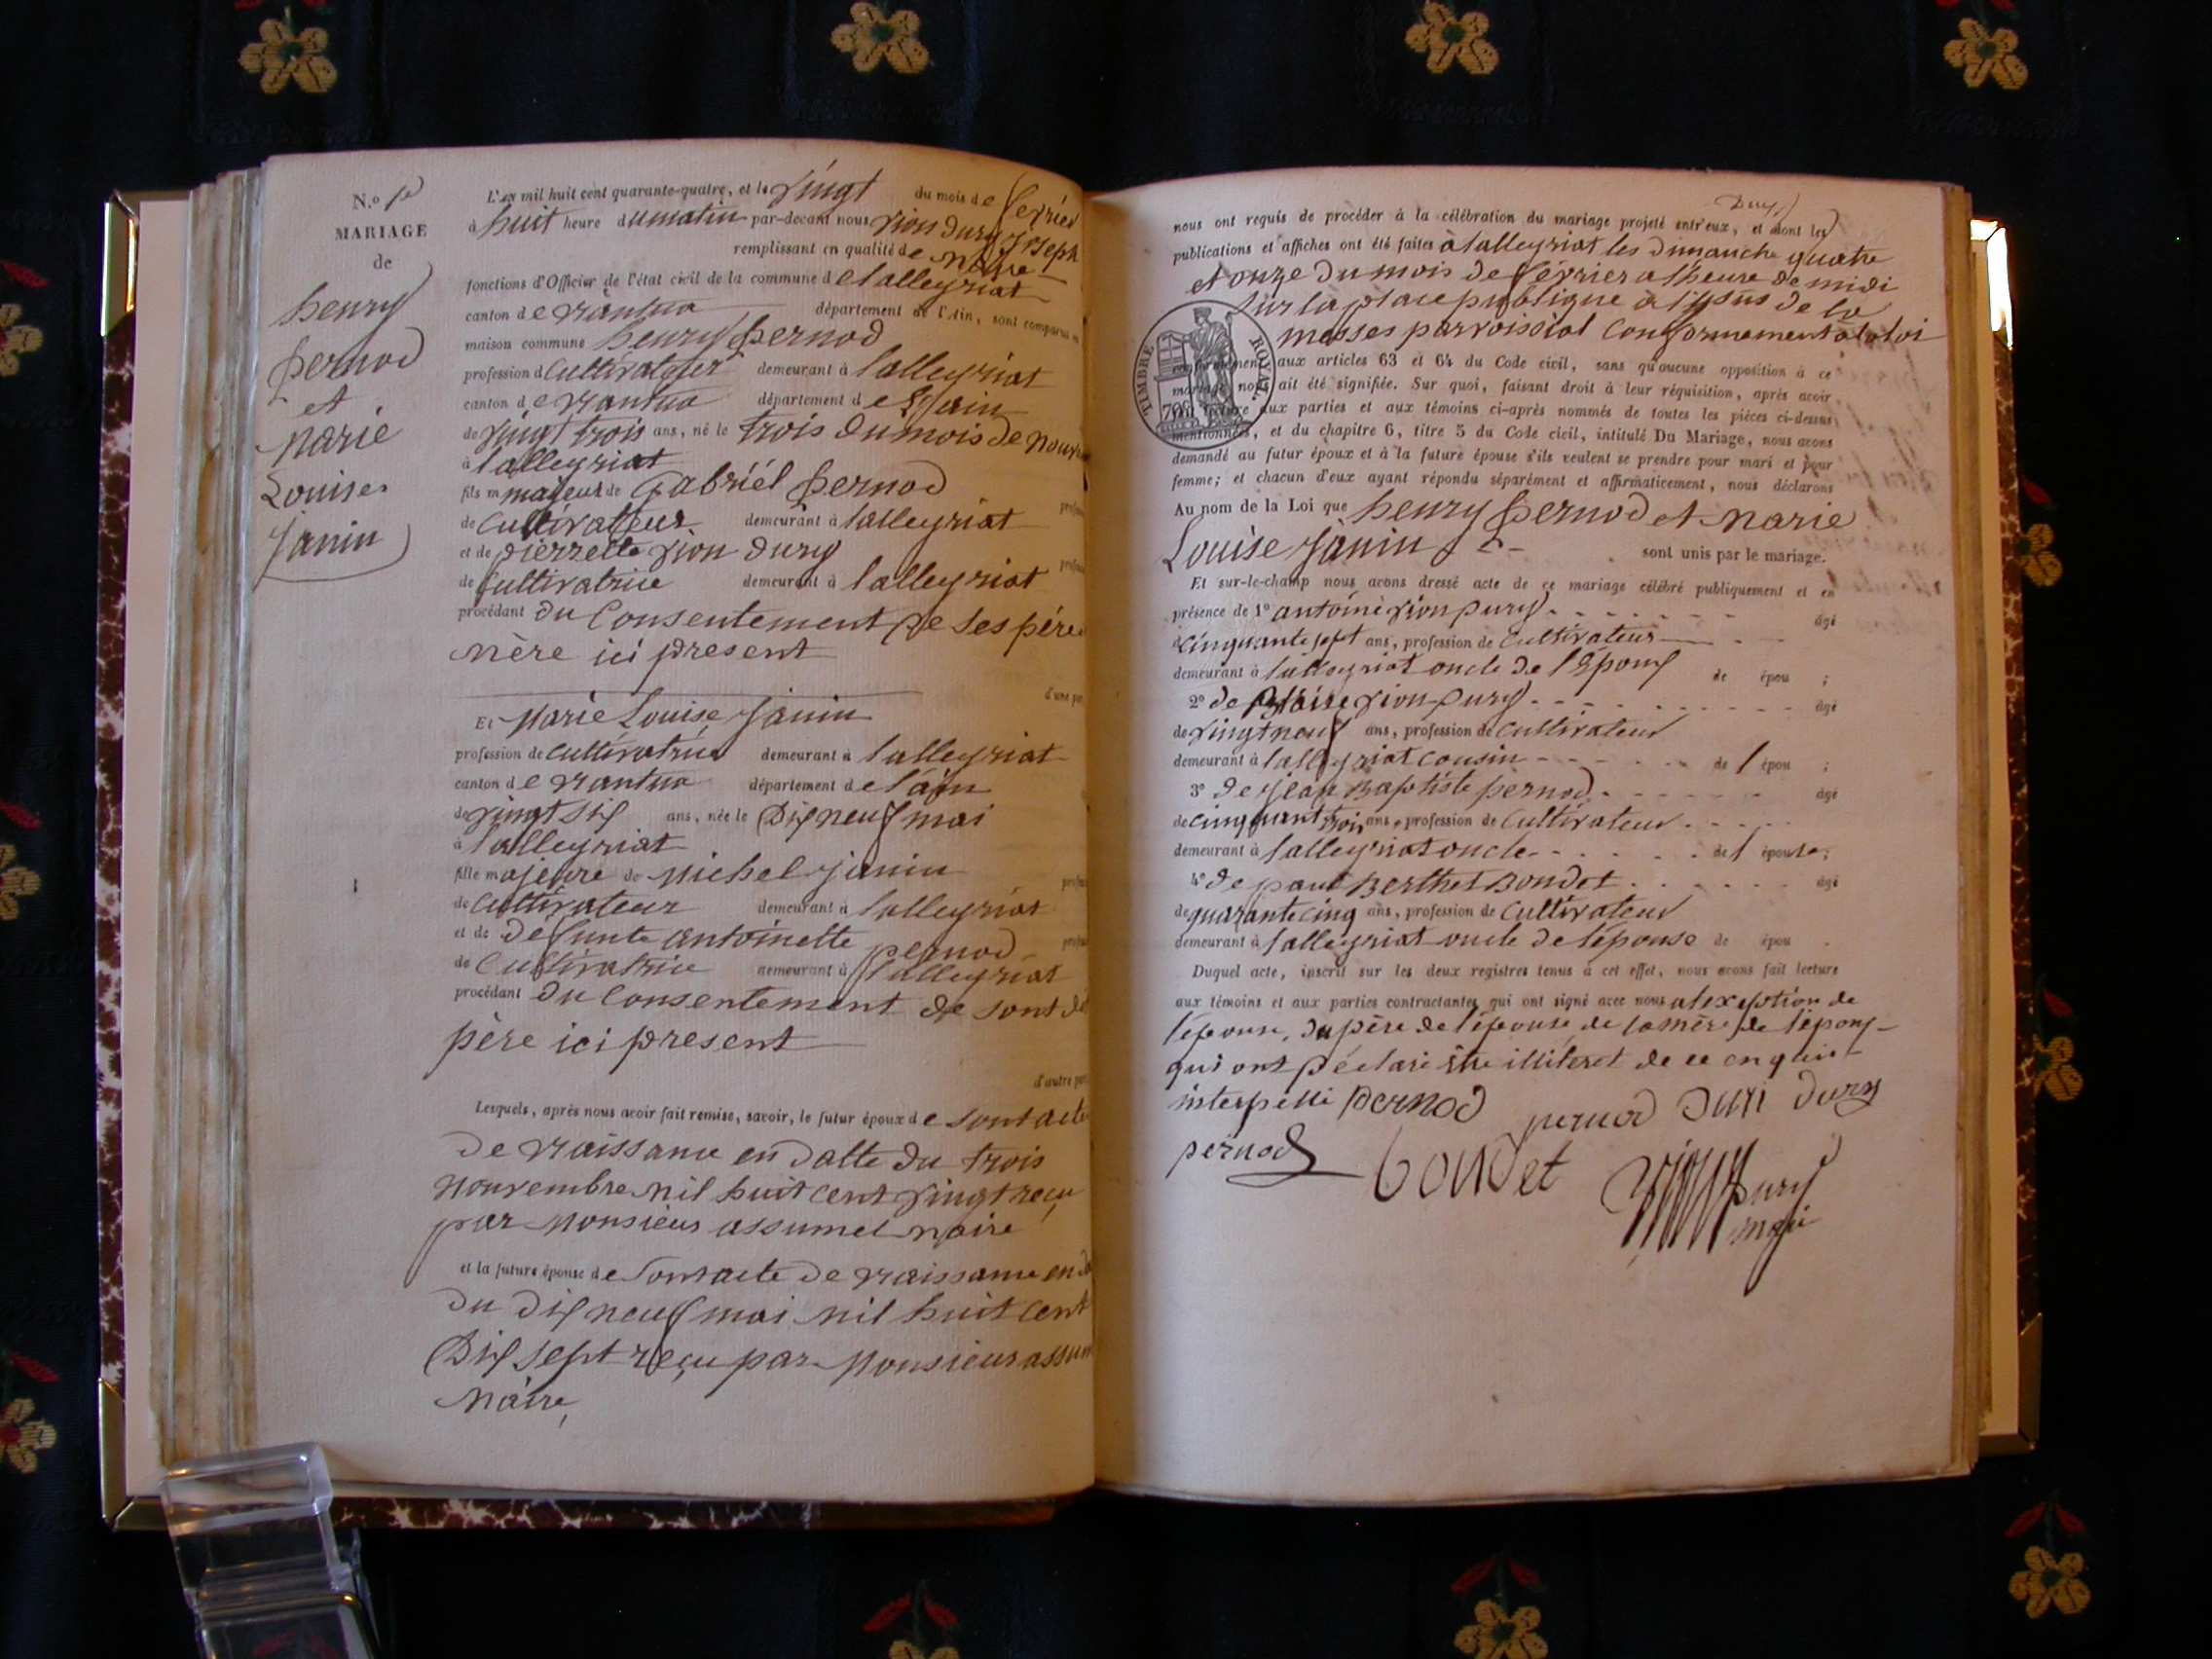 N.o 1er
MARIAGE
de
henry
pernod
et
Marie
Louise
Janin
L'an mil huit cent quarante-quatre, et le vingt du mois de février
à huit heure du matin par-devant nous vion dury joseph
remplissant en qualité de Maire
fonctions d'Officier de l'état civil de la commune de lalleyriat
canton de nantua département de l'Ain, sont comparus
maison commune henry pernod
profession de cultivateur demeurant à lalleyriat
canton de nantua département de l'ain
de vingt trois ans, né le trois du mois de
à lalleyriat
fils majeur de Gabriél pernod
de cultivateur demeurant à lalleyriat
et de pierrette vion dury
de cultivatrice demeurant à lalleyriat
procédant du Consentement de ses père
mère ici present
d'une
Et Marie Louise Janin
profession de cultivatrice demeurant à lalleyriat
canton de nantua département de l'ain
de vingt six ans, née le Dix neuf mai
à lalleyriat
fille majeure de Michel janin
de cultivateur demeurant à lalleyriat
et de defunte antoinette pernod
de Cultivatrice demeurant à lalleyriat
procédant du Consentement de sont
père ici present
d'autre
Lesquels, après nous avoir fait remise, savoir, le futur époux de sont acte
De naissance en datte du trois
Nouvembre mil huit cent vingt reçu
par Monsieur assumel Maire
et la future épouse de sont acte de naissance en
du dix neuf mai mil huit cent
Dix sept reçu par Monsieur
Maire
Dury
nous ont requis de procéder à la célébration du mariage projeté entr'eux, et dont les
publications et affiches ont été faites à lalleyriat les dimanche quatre
et onze du mois de février a lheure de midi
sur la place publique à l'issus de la
messes parroissial Conformement a la loi
TIMBRE ROYAL
conformément aux articles 63 et 64 du Code civil, sans qu'aucune opposition à ce
mariage nous ait été signifiée. Sur quoi, faisant droit à leur réquisition, après avoir
fait lecture aux parties et aux témoins ci-après nommés de toutes les pièces ci-dessus
mentionnées, et du chapitre 6, titre 5 du Code civil, intitulé Du Mariage, nous avons
demandé au futur époux et à la future épouse s'ils veulent se prendre pour mari et pour
femme; et chacun d'eux ayant répondu séparément et affirmativement, nous déclarons
Au nom de la Loi que henry pernod et Marie
Louise Janin sont unis par le mariage.
Et sur-le-champ nous avons dressé acte de ce mariage célébré publiquement et en
présence de 1º antoine vion Dury âgé
cinquante sept ans, profession de Cultivateur
demeurant à lalleyriat oncle de l'époux de épou ;
2º de Blaise vion Dury âgé
de vingt neuf ans, profession de cultivateur
demeurant à lalleyriat cousin de l épou ;
3º de jean Baptiste pernod âgé
de cinquant trois ans, profession de Cultivateur
demeurant à lalleyriat oncle de l épouse;
4º de paul Berthet Bondet âgé
de quarante cinq ans, profession de Cultivateur
demeurant à lalleyriat oncle de l'épouse de épou
Duquel acte, inscrit sur les deux registres tenus à cet effet, nous avons fait lecture
aux témoins et aux parties contractantes qui ont signé avec nous a lexeption de
l'épouse, du père de l'épouse, de la mère de l'époux
qui ont déclaré être illiteret de ce enquis
interpellé pernod pernod Duri Dury
pernod Bondet vion Dury
maire